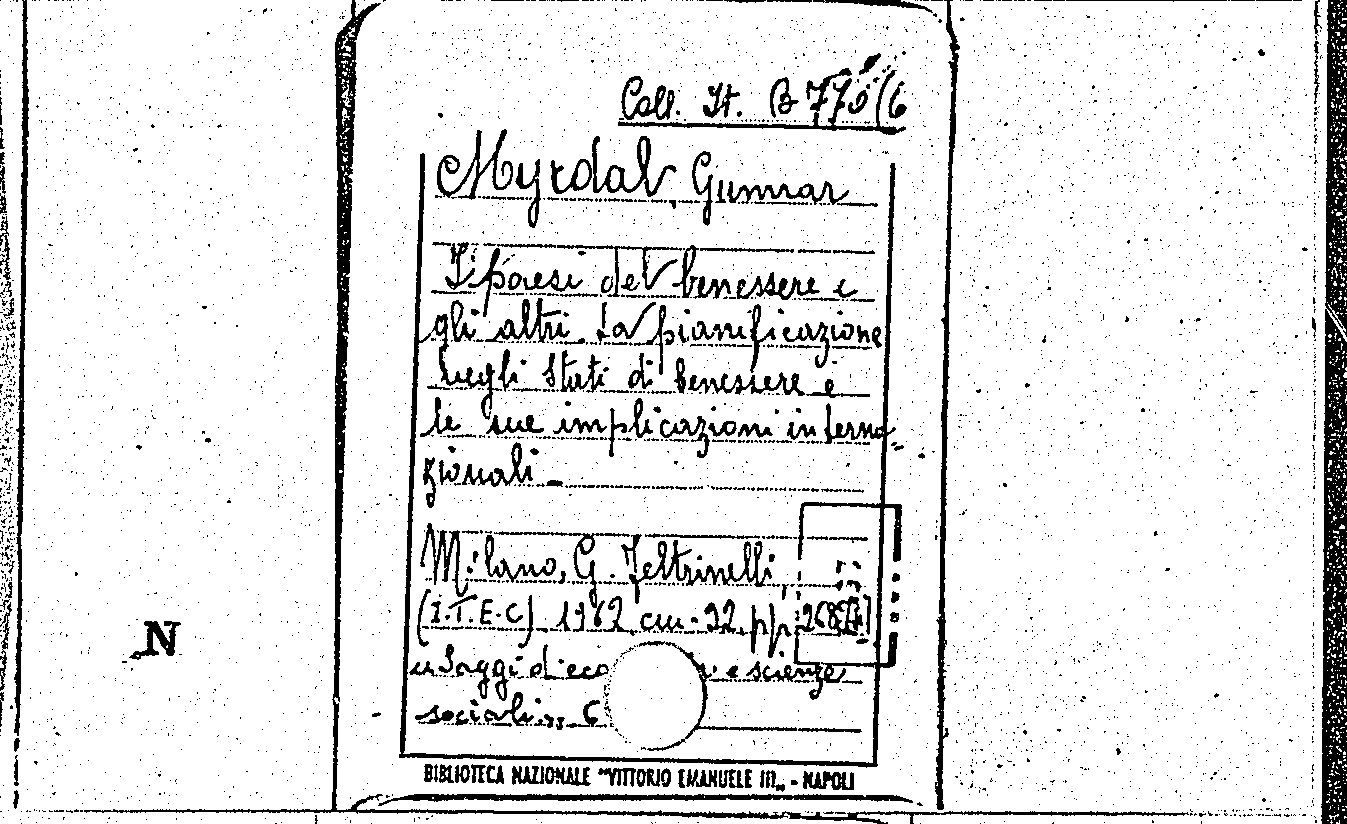 Coll. It. B 770(6
Myrdal, Gunnar
I paesi del benessere e
gli altri. La pianificazione
negli Stati di benessere e
le sue implicazioni interna-
zionali -
Milano, G. Feltrinelli,
(I.T.E.C). 1962 cm. 22. pp.
"Saggi di eco e scienze
sociali". 6
N
BIBLIOTECA NAZIONALE "VITTORIO EMANUELE III„ - NAPOLI